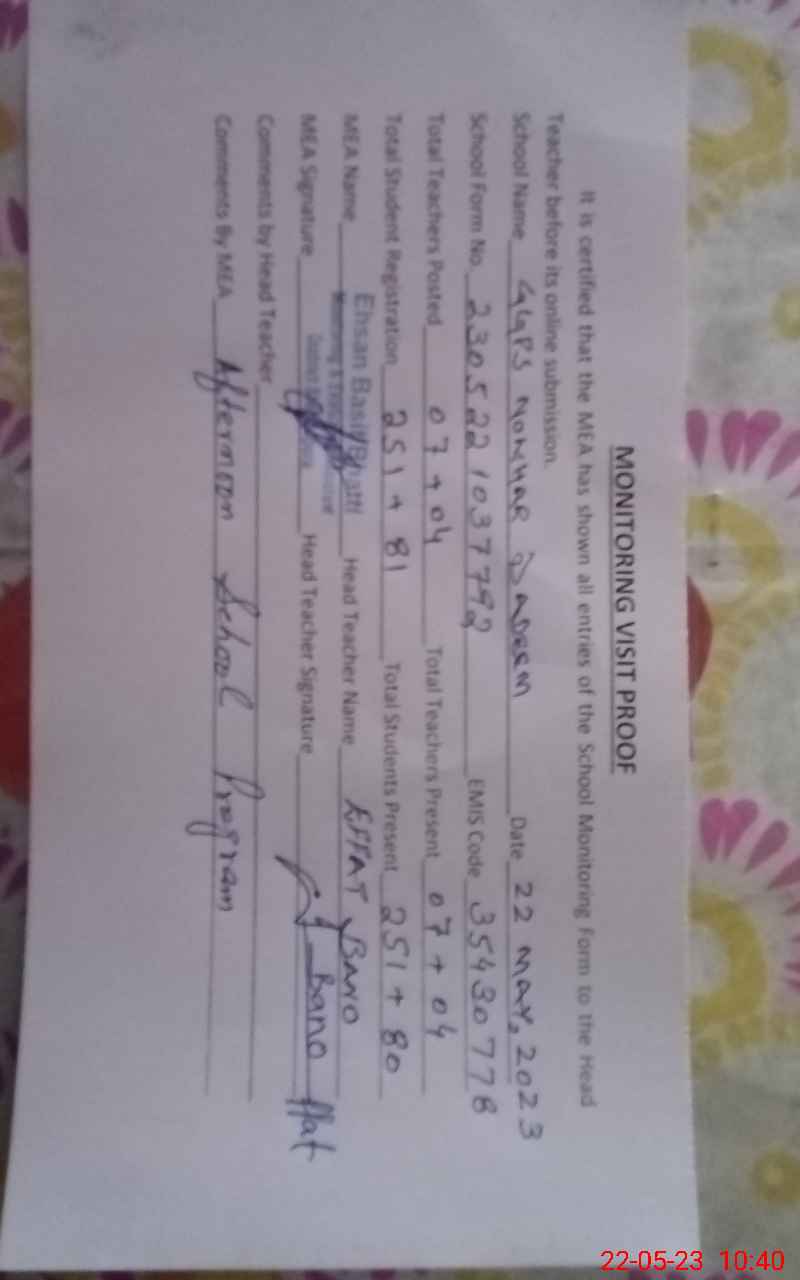 MONITORING VISIT PROOF
It is certified that the MEA has shown all entries of the School Monitoring Form to the Head
Teacher before its online submission.
School Name GGPS NONHAR Date 22 MAY, 2023
School Form No. 230522 1037792 EMIS Code 35430778
Total Teachers Posted 07 + 04 Total Teachers Present 07 + 04
Total Student Registration 251 + 81 Total Students Present 251 + 80
MEA Name Ehsan Basit Bhatti Head Teacher Name EFFAT BANO
MEA Signature Head Teacher Signature Bano ffat
Comments by Head Teacher
Comments By MEA Afternoon School Program
22-05-23 10:40